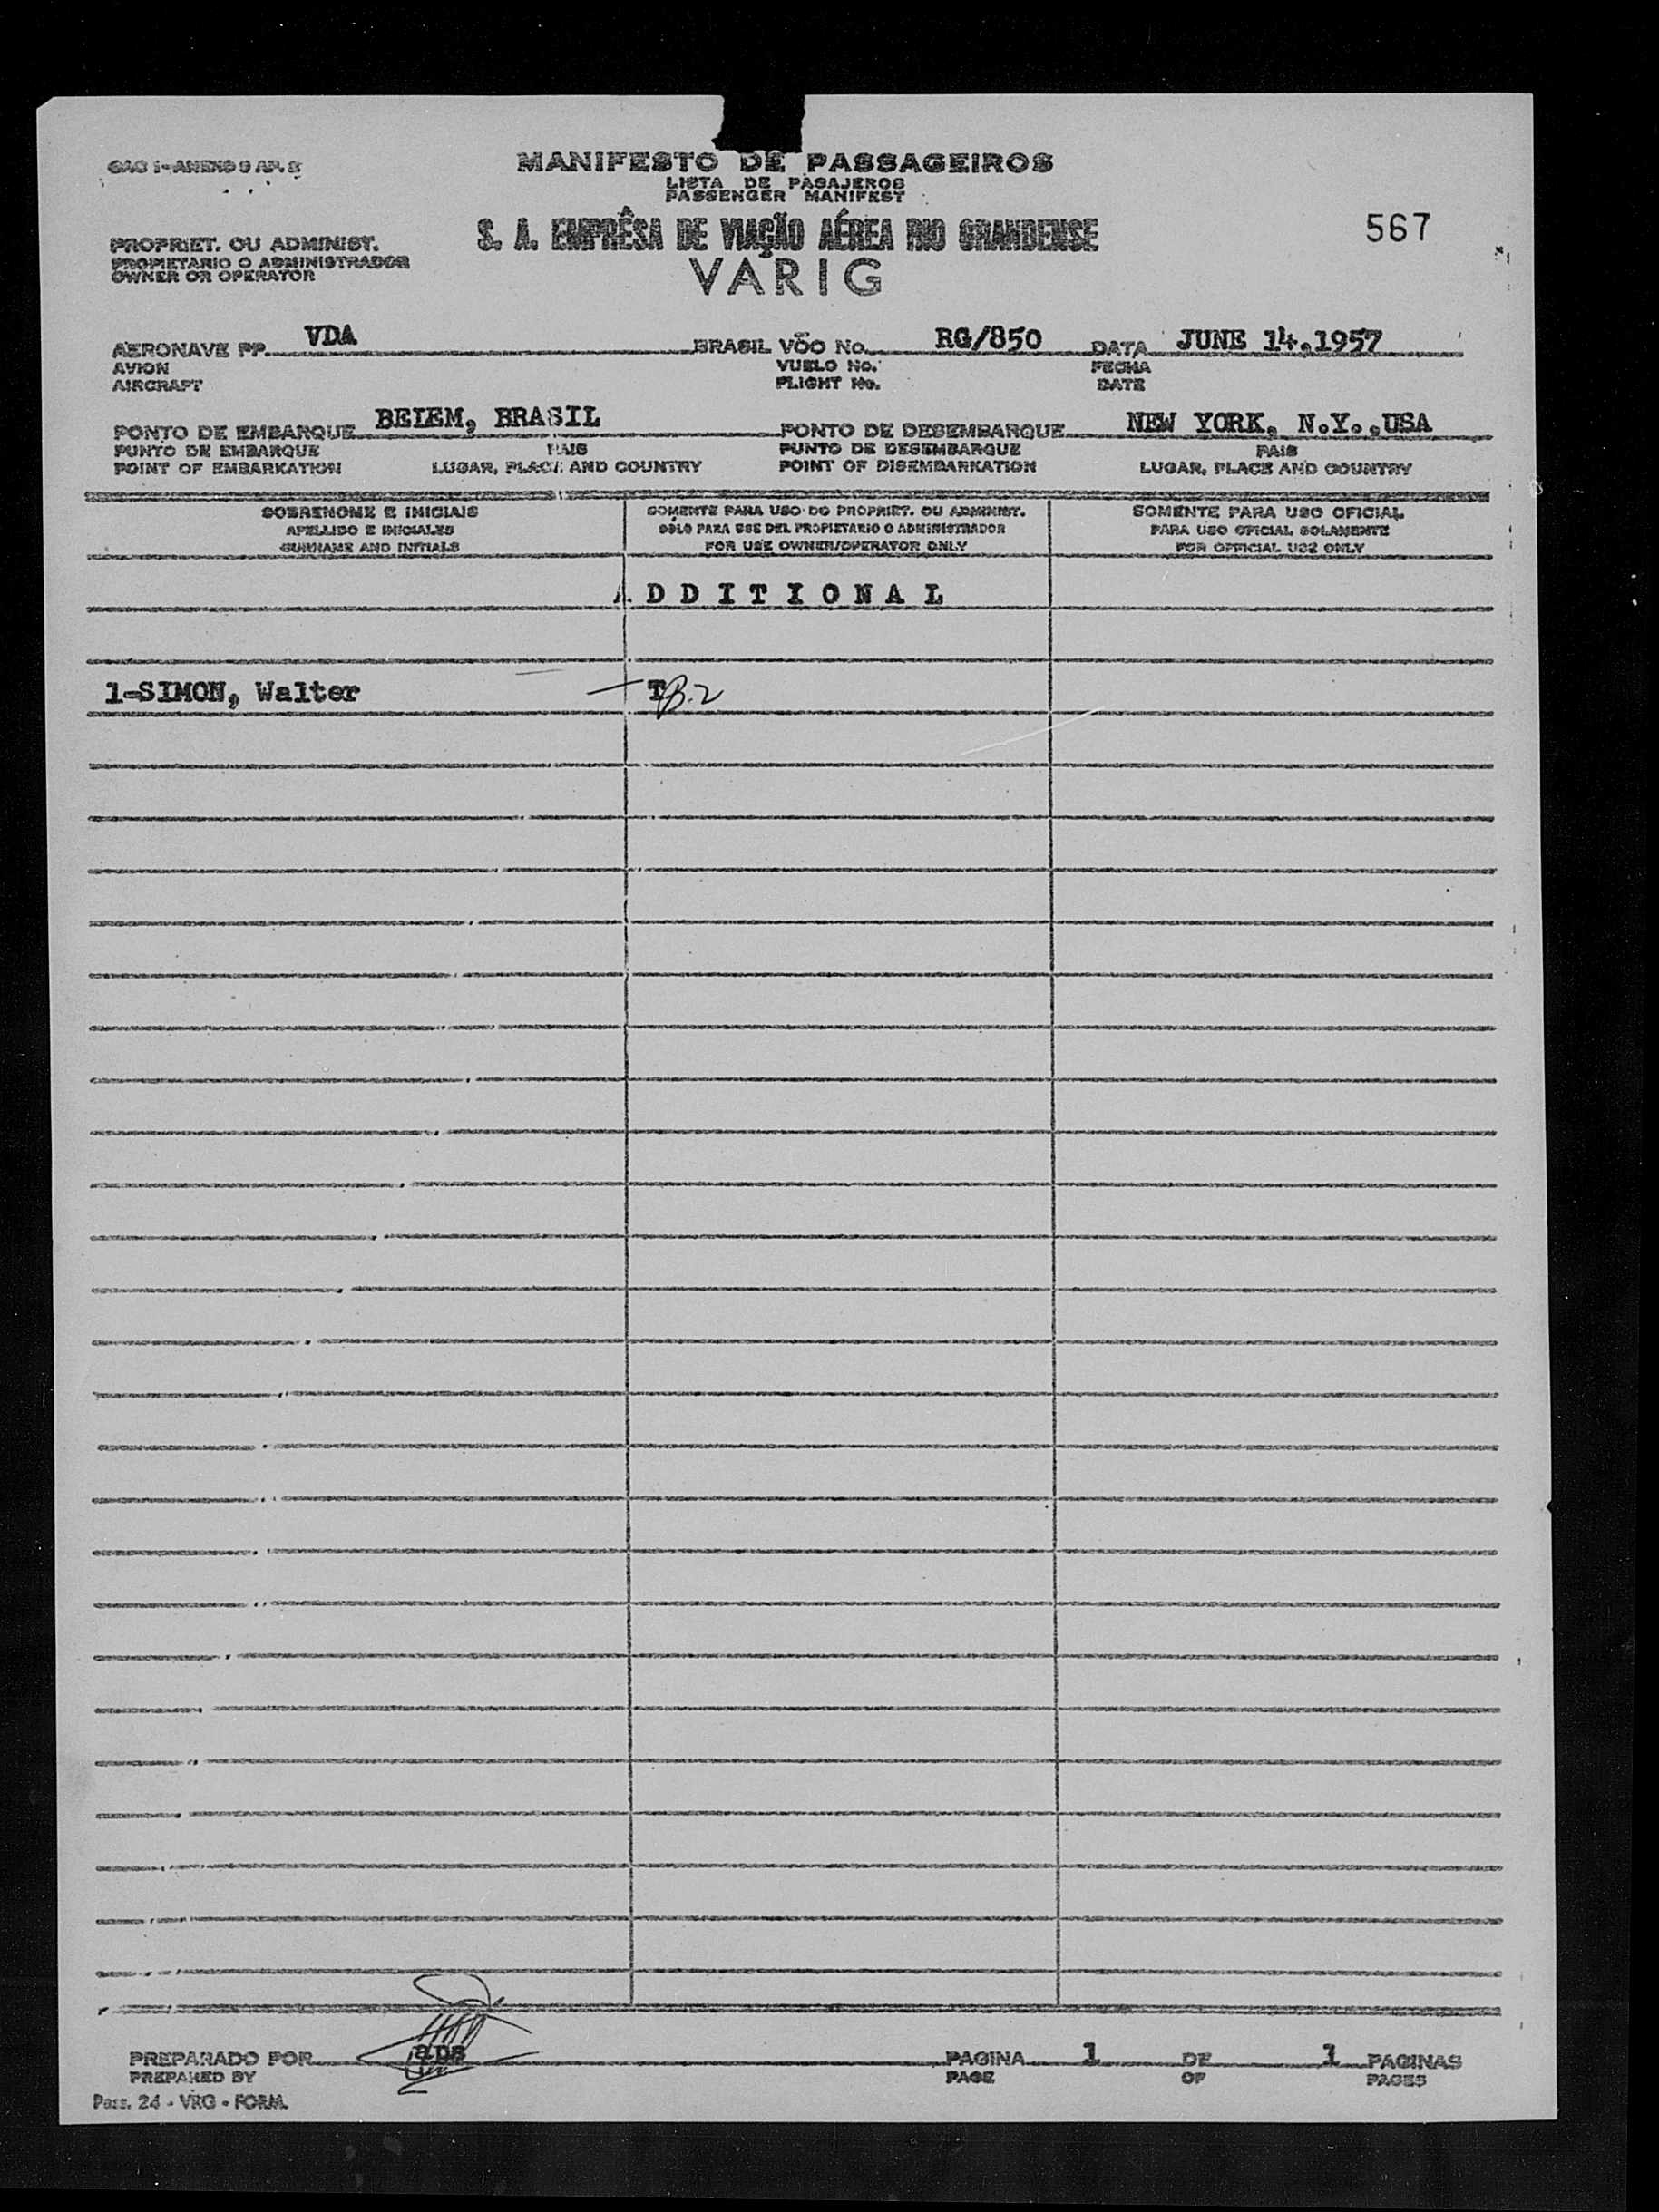 MANIFESTO DE PASSAGEIROS
LISTA DE PASAJEROS
PASSENGER MANIFEST
567
S. A. EMPRÊSA DE VIAÇÃO AÉREA RIO GRANDENSE
VARIG
PROPRIET. OU ADMINIST.
PROPIETARIO O ADMINISTRADOR
OWNER OR OPERATOR
AERONAVE PP VDA BRASIL VÔO No. RG/850 DATA JUNE 14.1957
AVION VUELO No. FECHA
AIRCRAFT FLIGHT No. DATE
PONTO DE EMBARQUE BELEM, BRASIL PONTO DE DESEMBARQUE NEW YORK, N.Y.,USA
PUNTO DE EMBARQUE PAIS PUNTO DE DESEMBARQUE PAIS
POINT OF EMBARKATION LUGAR, PLACE AND COUNTRY POINT OF DISEMBARKATION LUGAR, PLACE AND COUNTRY
SOBRENOME E INICIAIS SOMENTE PARA USO DO PROPRIET. OU ADMINIST. SOMENTE PARA USO OFICIAL
APELLIDO E INICIALES SÓLO PARA USE DEL PROPIETARIO O ADMINISTRADOR PARA USO OFICIAL SOLAMENTE
SURNAME AND INITIALS FOR USE OWNER/OPERATOR ONLY FOR OFFICIAL USE ONLY
A D D I T I O N A L
1-SIMON, Walter T B-2
PREPARADO POR PAGINA 1 DE 1 PAGINAS
PREPARED BY PAGE OF PAGES
Pass. 24 - VRG - FORM.